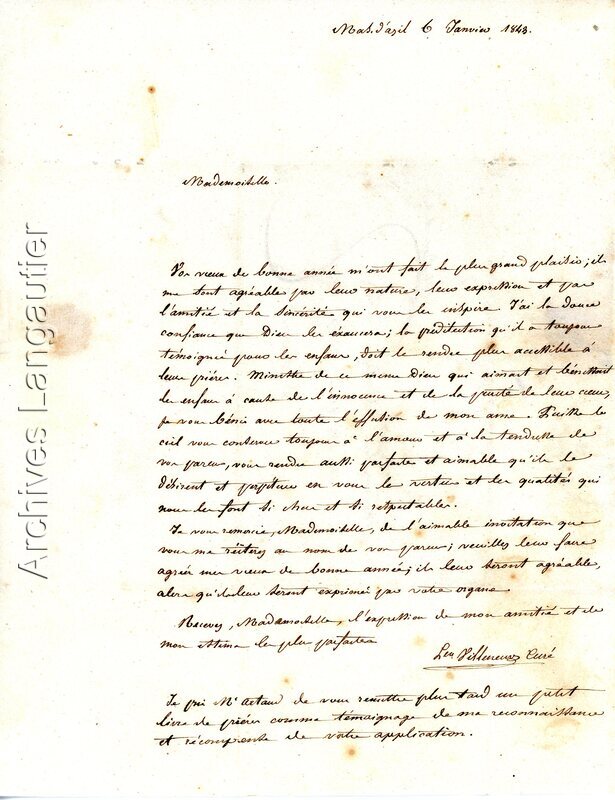 Mas-d'azil 6 Janvier 1843.
Mademoiselle.
Vos vœux de bonne année m'ont fait le plus grand plaisir; ils
me sont agréable par leur nature, leur expression et par
l'amitié et la sincérité qui vous les inspire. J'ai la douce
confiance que Dieu les exaucera; la prédilection qu'il a toujours
témoignée pour les enfans, doit le rendre plus accessible à
leur prière. Ministre de ce meme Dieu qui aimait et bénissait
les enfans à cause de l'innocence et de la pureté de leur cœur,
je vous bénis avec toute l'effusion de mon ame. Puisse le
ciel vous conserver toujours à l'amour et à la tendresse de
vos parens, vous rendre aussi parfaite et aimable qu'ils le
désirent et perpétuer en vous les vertus et les qualités qui
nous les font si cher et si respectables.
Je vous remercie, Mademoiselle, de l'aimable invitation que
vous me réitérez au nom de vos parens; veuillez leur faire
agréer mes vœux de bonne année; ils leur seront agréable,
alors qu'ils leur seront exprimés par votre organe.
Recevez, Mademoiselle, l'expression de mon amitié et de
mon estime la plus parfaite
Curé
Je prie Mr Artaud de vous remettre plus tard un petit
livre de prières comme témoignage de ma reconnaissance
et récompense de votre application.
Archives Langautier